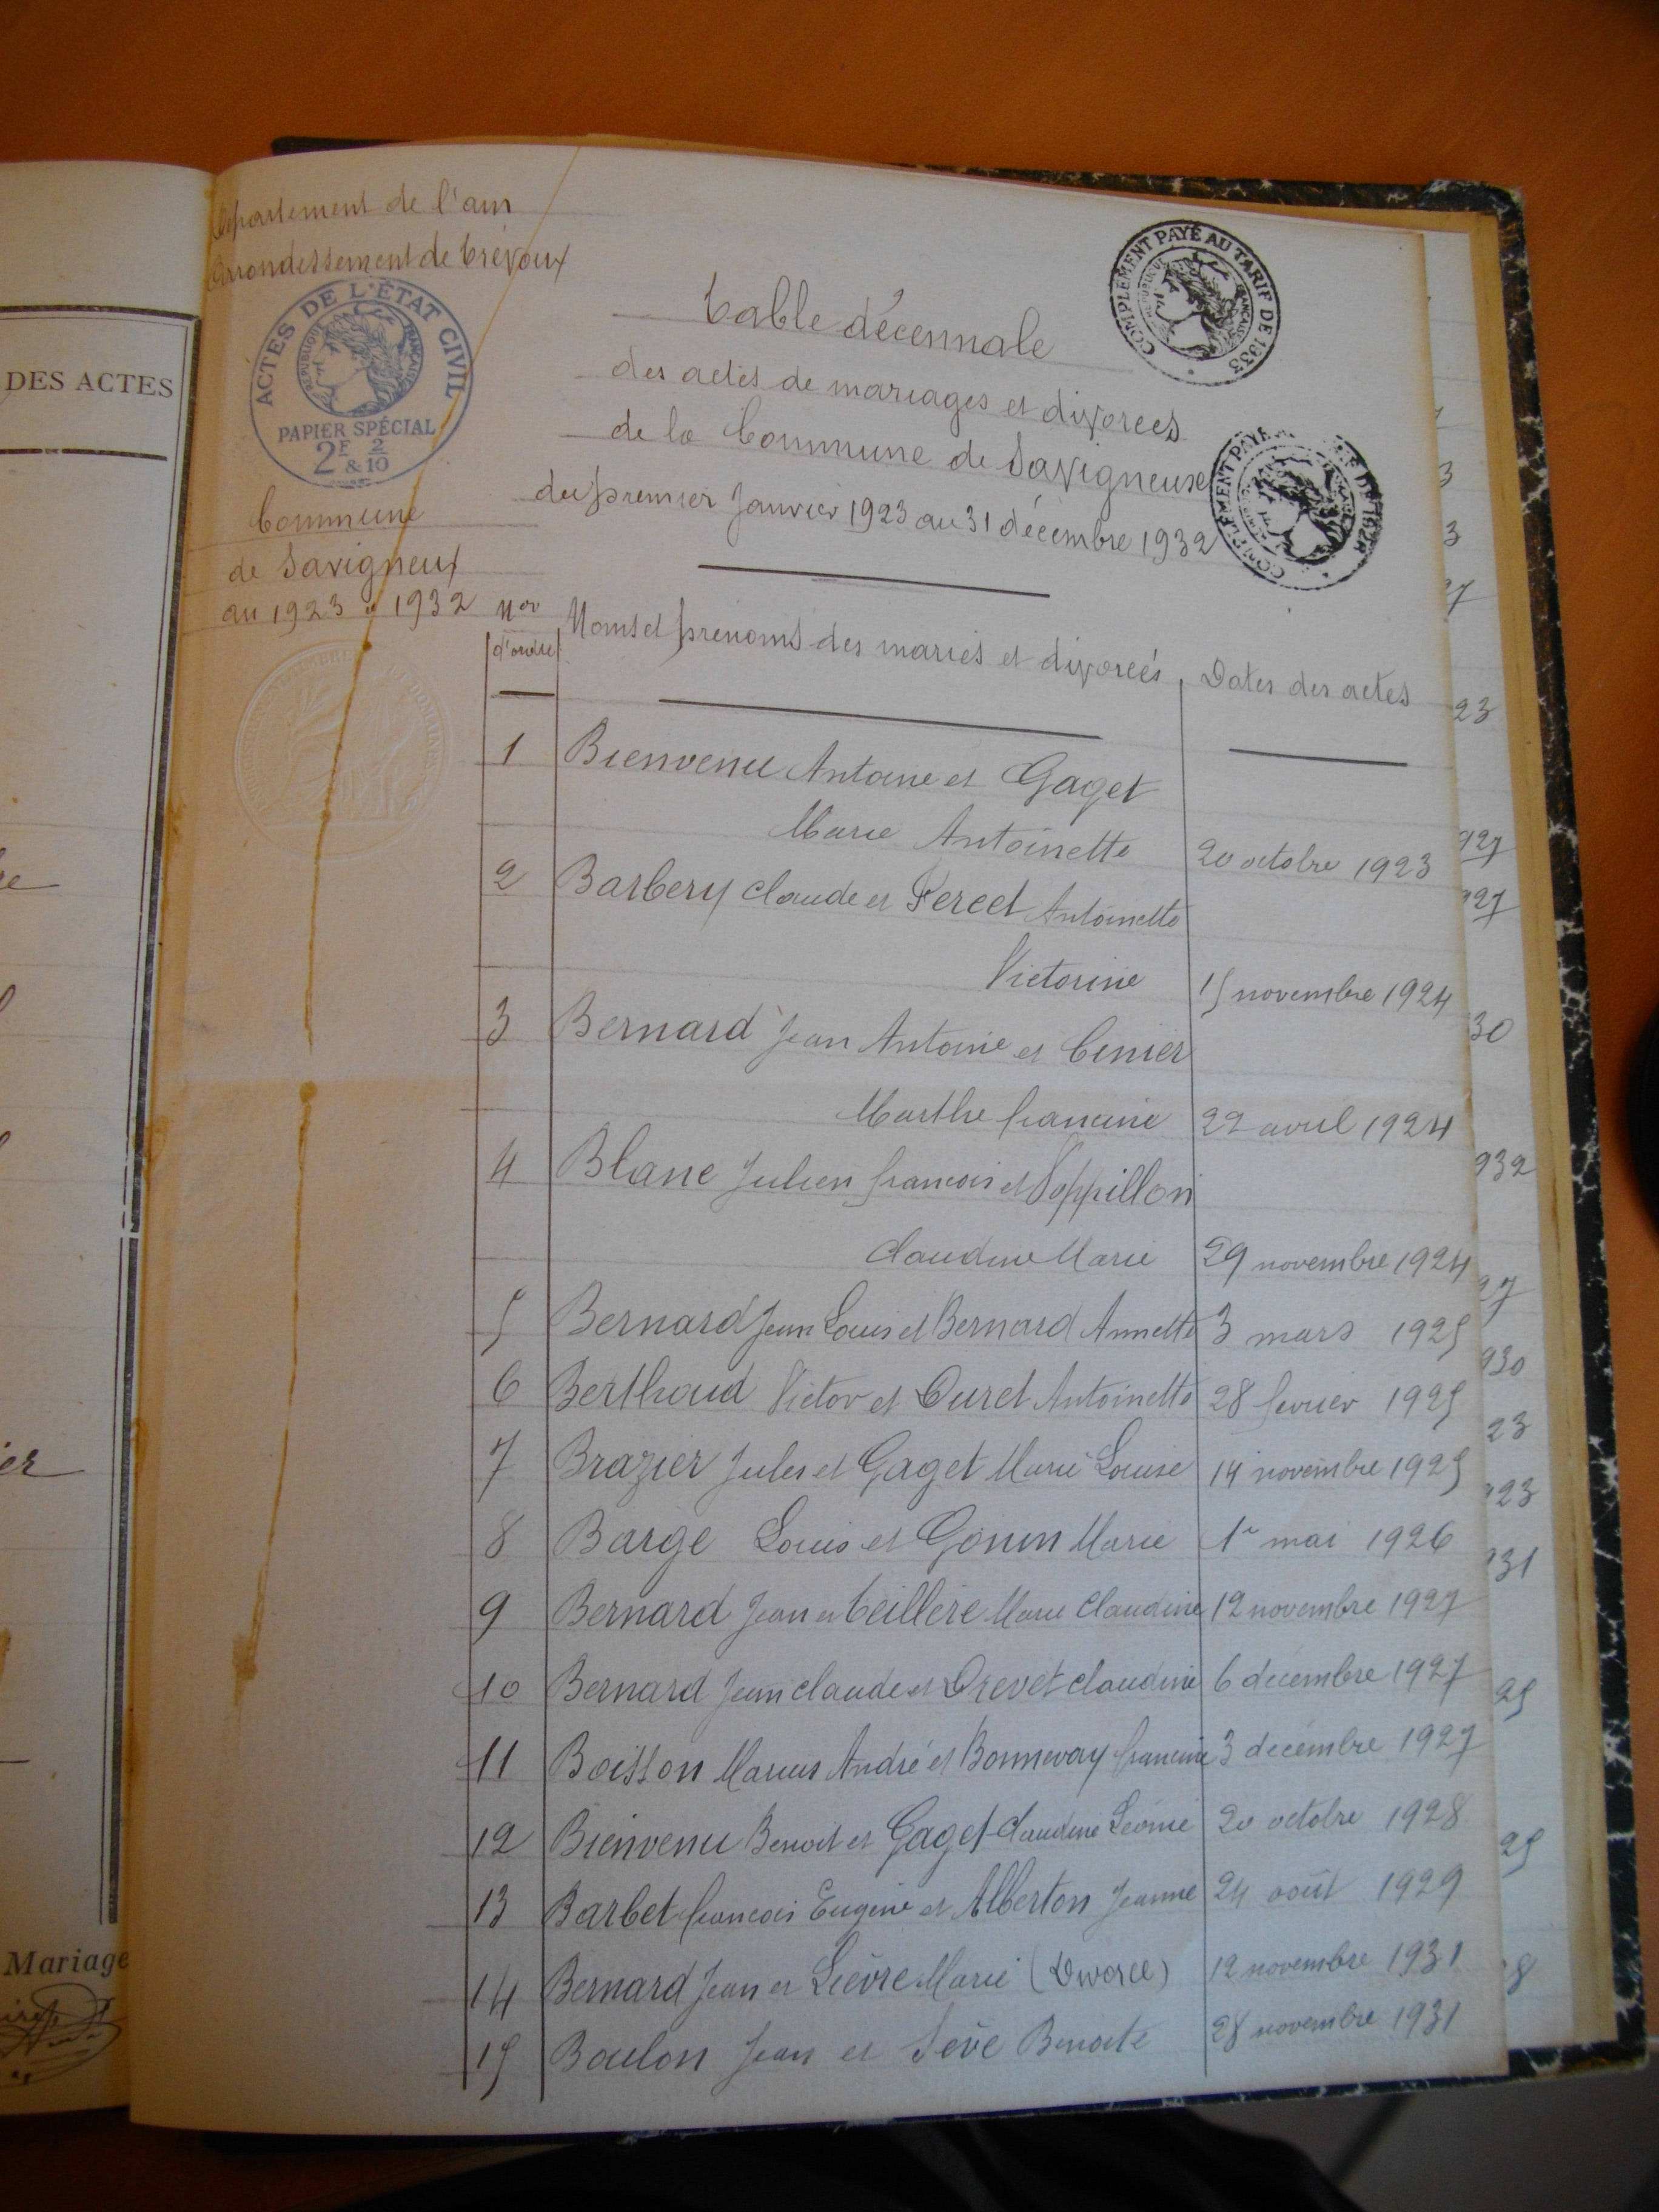 Département de l'ain
Arrondissement de Trévoux
ACTES DE L'ÉTAT CIVIL
RÉPUBLIQUE FRANÇAISE
PAPIER SPÉCIAL
2F & 2/10
Commune
de Savigneux
an 1923 à 1932
COMPLÉMENT PAYÉ AU TARIF DE 1933
COMPLÉMENT PAYÉ
Table décennale
des actes de mariages et divorces
de la Commune de Savigneux
du premier Janvier 1923 au 31 décembre 1932
Nos d'ordre
Noms et prenoms des mariés et divorcés
Dates des actes
1 Bienvenu Antoine et Gaget
Marie Antoinette 20 octobre 1923
2 Barbery Claude et Ferret Antoinette
Victorine 15 novembre 1924
3 Bernard Jean Antoine et Cinier
Marthe francine 22 avril 1924
4 Blanc Julien francois et Poppillon
Claudine Marie 29 novembre 1924
5 Bernard Jean Louis et Bernard Annette 3 mars 1925
6 Berthoud Victor et Duret Antoinette 28 fevrier 1925
7 Brazier Jules et Gaget Marie Louise 14 novembre 1925
8 Barge Louis et Gonin Marie 1r mai 1926
9 Bernard Jean et Teillere Marie Claudine 12 novembre 1927
10 Bernard Jean claude et Drevet claudine 6 décembre 1927
11 Boisson Marius André et Bonnevay francine 3 decembre 1927
12 Bienvenu Benoit et Gaget Claudine Léonie 20 octobre 1928
13 Barbet francois Eugène et Alberton Jeanne 24 août 1929
14 Bernard Jean et Lièvre Marie (Divorce) 12 novembre 1931
15 Boulon Jean et Sève Benoite 28 novembre 1931
DES ACTES
Mariage